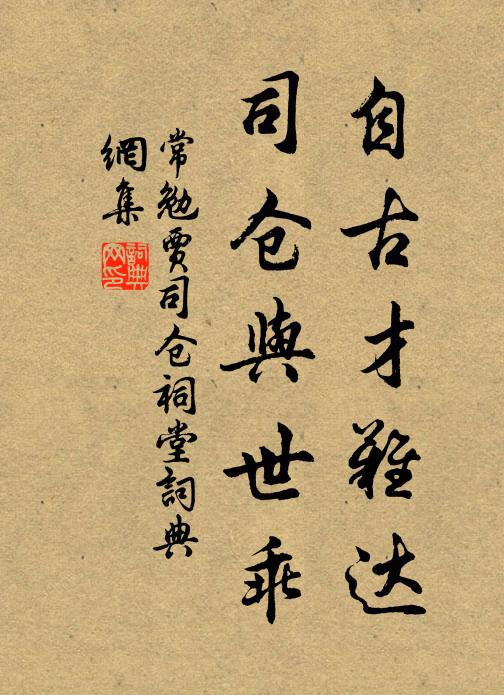 自古才難达
司仓與世乖
常勉賈司仓祠堂詞典
網集
詞典
网印